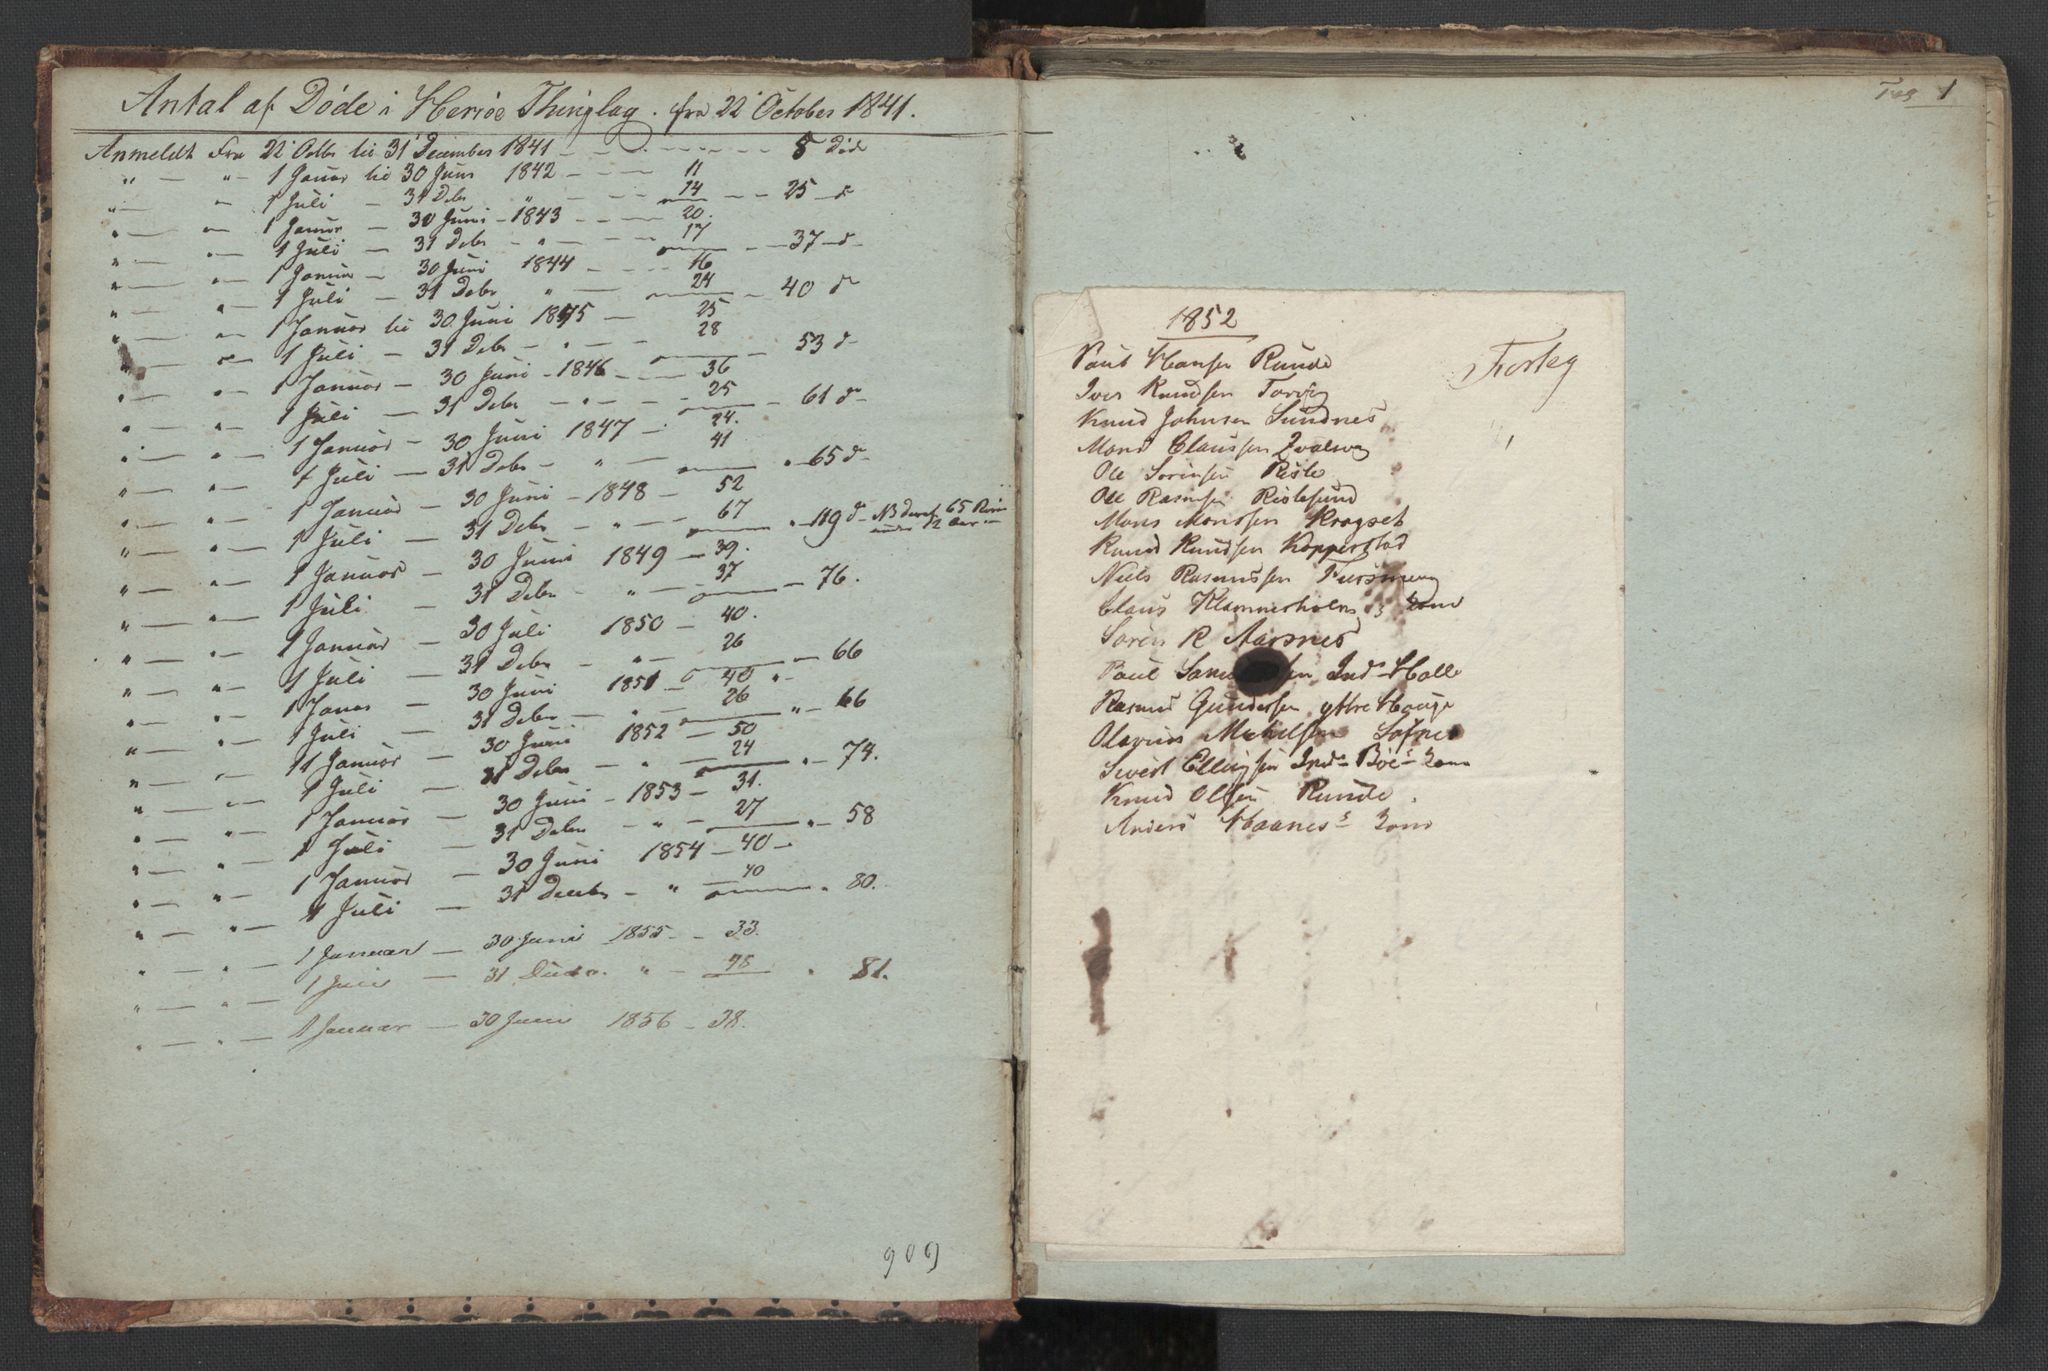 Antal af Døde i Herröe Thinglag. fra 22 October 1841.
Anmeldt Fra 22 Octbr til 31 December 1841 - - - - 8 Død
" — " — 1 Januar til 30 Juni 1842 — — — 11
" — " 1 Juli — 31 Debr " — — 14 — — 25 d
" — " — 1 Januar — 30 Juni — 1843 — — — 20.
" — " — 1 Juli — 31 Debr — " — — — 17 — — 37 — d —
" — " — 1 Januar — 30 Juni 1844 — — — 16
" — " — 1 Juli — 31 Debr " — 24 — 40 d
" — " — 1 Januar til 30 Juni 1845 — 25
" — " — 1 Juli — 31 Debr — " — — 28 — 53 d —
" — " — 1 Januar — 30 Juni — 1846 — — 36
" — " — 1 Juli — 31 Debr — " — — 25 — 61 d —
" — " — 1 Januar — 30 Juni 1847 — 24.
" — " — 1 Juli — 31 Debr — " — 41 " 65 d —
" — " — 1 Januar — 30 Juni — 1848 — 52
" — " — 1 Juli — 31 Debr — " — 67 " 119 d — NB deraf 65 Børn
under 12 Aar —
" — " — 1 Januar — 30 Juni 1849 — 39.
" — " — 1 Juli — 31 Debr — " — 37 — 76.
" — " — 1 Januar — 30 Juli 1850 — 40.
" — " — 1 Juli — 31 Debr — " — 26 " — 66
" — " — 1 Januar — 30 Juni 1851 — 40 " —
" — " — 1 Juli — 31 Debr — " — 26 " — 66
" — " — 1 Januar — 30 Juni 1852 — 50
" — " — 1 Juli — 31 Debr — " — 24 " — 74.
" — " — 1 Januar — 30 Juni — 1853 — 31.
" — " — 1 Juli — 31 Debr — " — 27 " — 58
" — " — 1 Januar — 30 Juni 1854 — 40 —
" — " — 1 Juli — 31 Decbr — " — 40 " 80.
" — " — 1 Januar — 30 Juni 1855 — 33.
" — " — 1 Juli — 31 " — 48 " 81.
" — " — 1 Januar — 30 Juni 1856 — 38.
909
1
1852
Forteg
Paul Hansen Runde
Iver Knudsen Torvig
Knud Johnsen Sundnes
Mons Claussen Qvalsvig
Ole Sørensen Riste
Ole Rasmsen Ristesund
Mons Monssen Kragset
Knud Knudsen Kopperstad
Niels Rasmussen
Claus Flammerholms Kone
Søren R Aarsnes
Paul Ind Halle
Rasmus Gundersen yttre Houge
Olarius Mikelsen Søfnes
Sivert Ellingsen Ind Böe Kone
Knud Olsen Runde.
Anders Kone